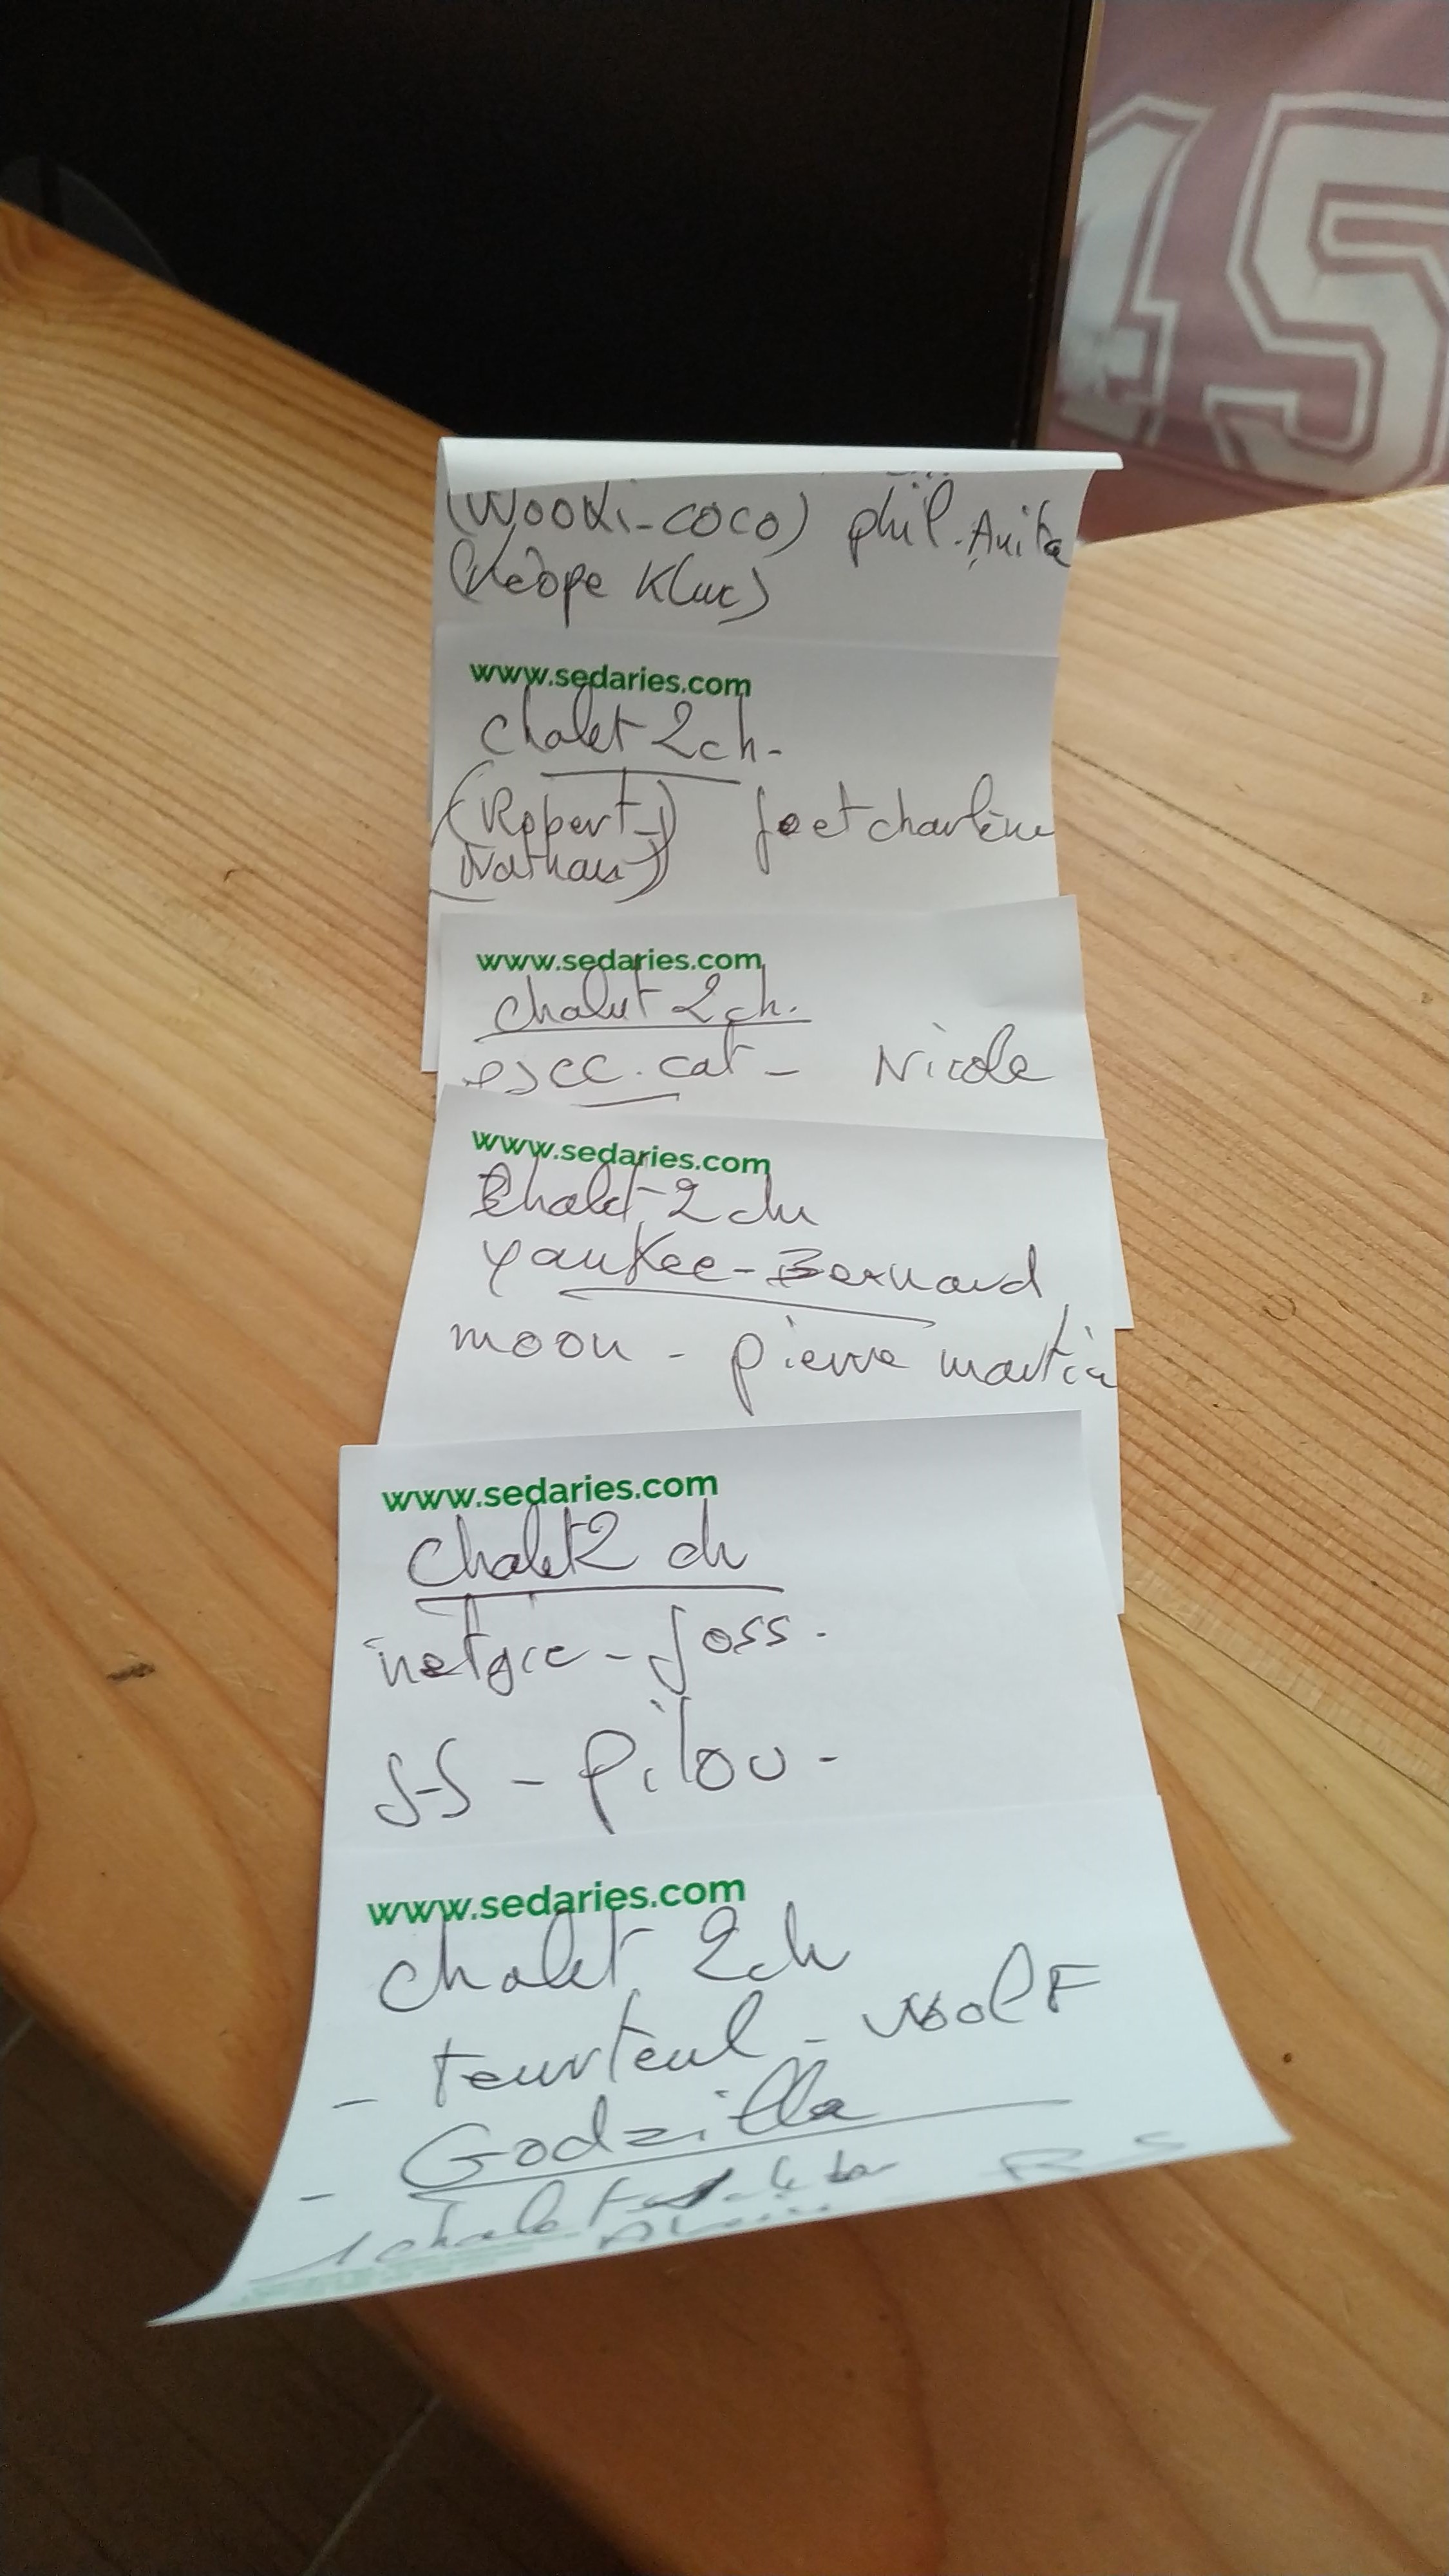 (Wooki-coco) phil. Anita
(Kéope Kluc)
www.sedaries.com
chalet 2ch-
(Robert-) Jo et charlène
(Nathan)
www.sedaries.com
chalet 2ch.
cat - Nicole
www.sedaries.com
Chalet 2ch
yankee-Bernard
moon - pierre martin
www.sedaries.com
Chalet 2 ch
Joss.
JJ - Pilou -
www.sedaries.com
chalet 2ch
- teurteul - WolF
- Godzilla
1 chalet
15